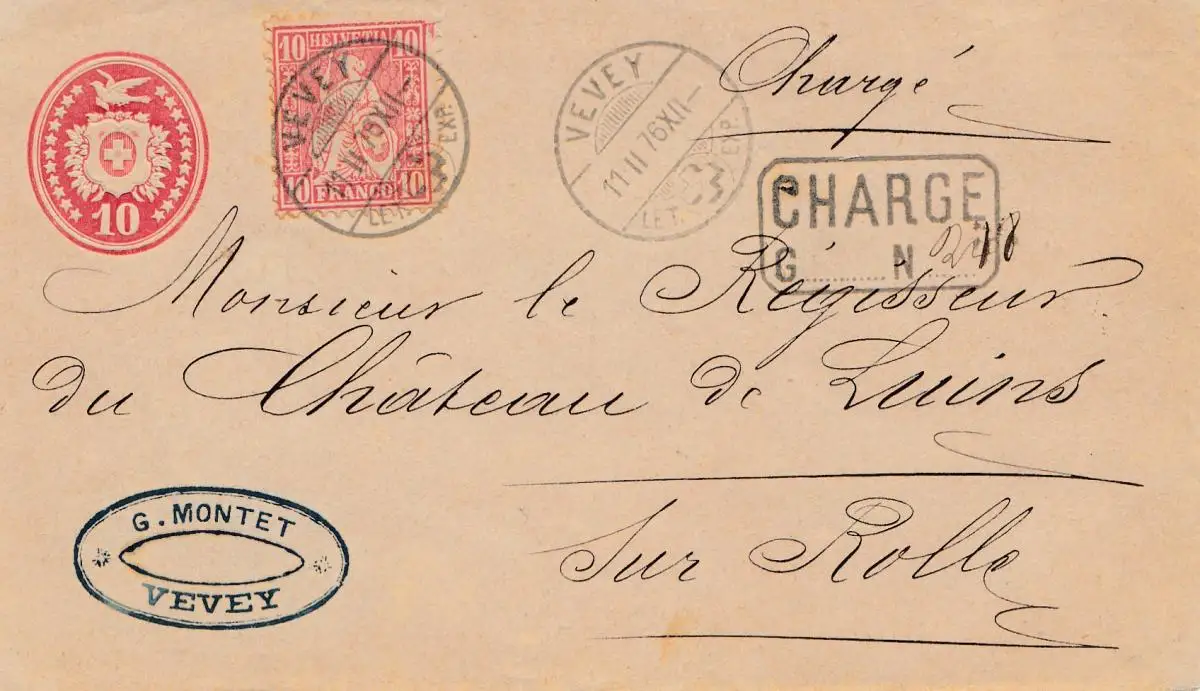 10
10 HELVETIA 10
10 FRANCO 10
VEVEY
11·II 76 XII—
LET. EXP.
VEVEY
11·II 76 XII—
LET. EXP.
Chargé
CHARGE
G N 18
Monsieur le Régisseur
du Château de Luins
Sur Rolle
G. MONTET
VEVEY